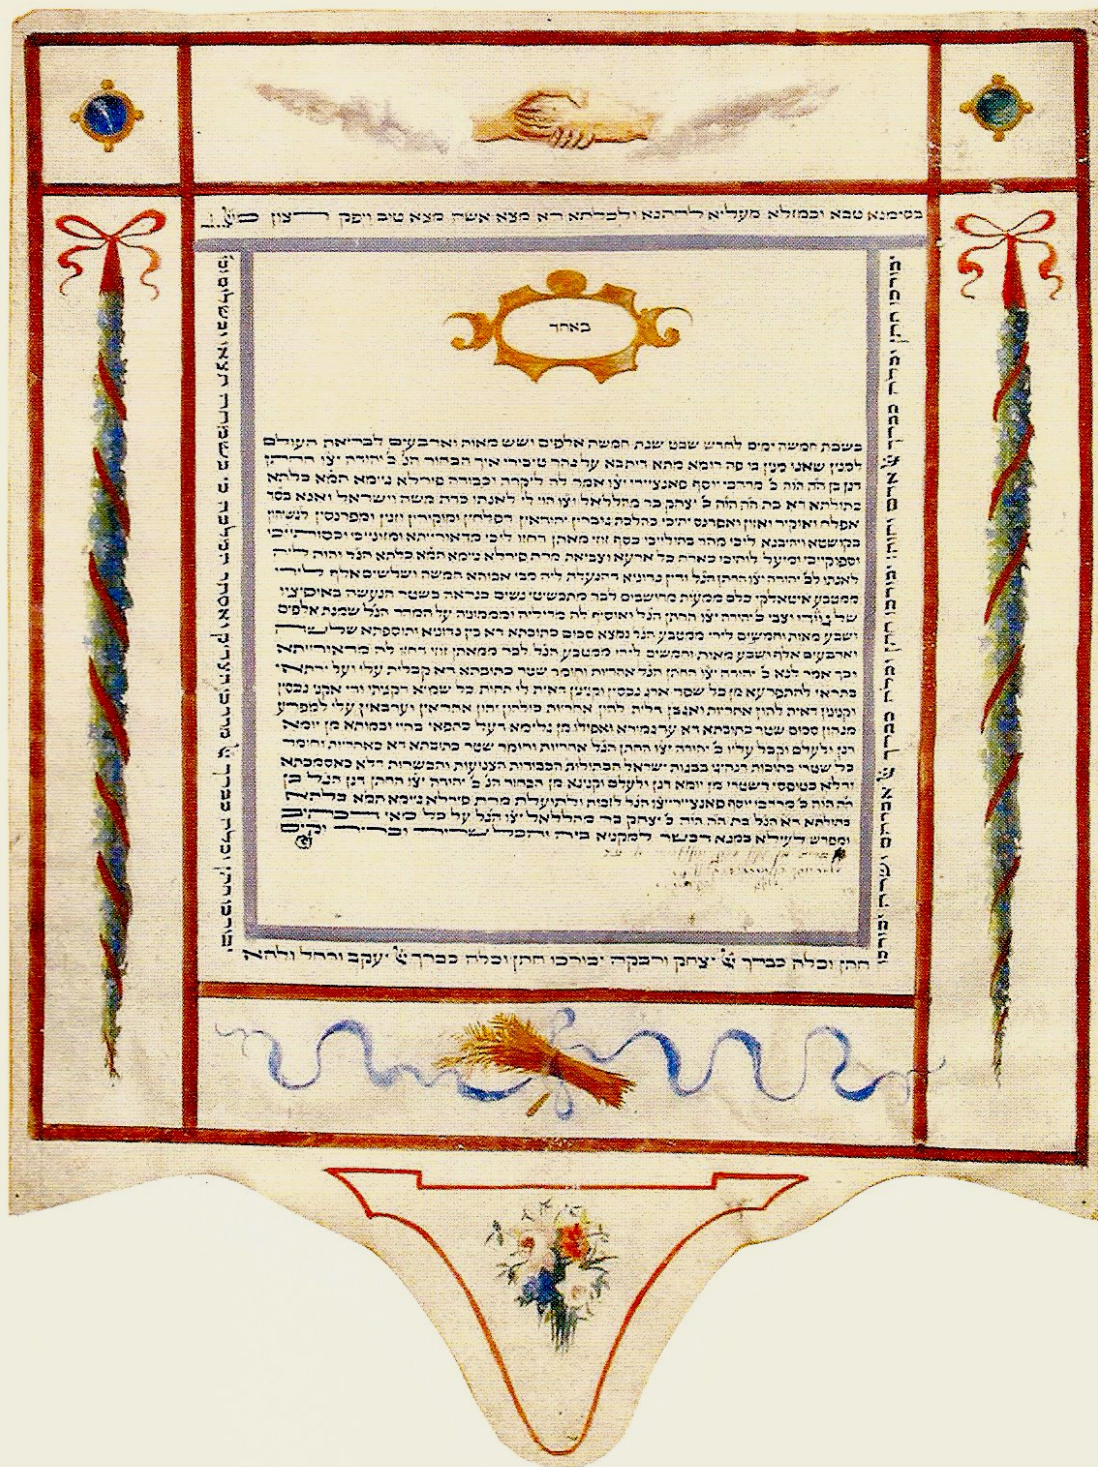 בסימנא טבא ובמזלא מעליא לחתנא ולכלתא דא מצא אשה מצא טוב ויפק רצון
באחד
בשבת חמשה ימים לחדש שבט שנת חמשה אלפים ושש מאות וארבעים לבריאת העולם
למנין שאנו מנין בו פה רומא מתא דיתבא על נהר טיבירי איך הבחור הנ׳ כ׳ יהודה יצו החתן
דנן בן הה הוה כ׳ מרדכי יוסף פאנציירי יצו אמר לה ליקרה וכבודה פירלא ניימא תמא כלתא
בתולתא דא בת הה הוה כ׳ יצחק בר מהללאל יצו הוי לי לאנתו כדת משה וישראל ואנא בסד
אפלח ואוקיר ואזון ואפרנס יתיכי כהלכת גוברין יהודאין דפלחין ומוקירין וזנין ומפרנסין לנשיהון
בקושטא ויהיבנא ליכי מהר בתוליכי כסף זוזי מאתן דחזו ליכי מדאורייתא ומזוניכי וכסותייכי
וספוקייכי ומיעל לותיכי כארח כל ארעא וצביאת מרת פירלא ניימא תמא כלתא הנל והות ליה
לאנתו לכ׳ יהודה יצו החתן הנל ודין נדוניא דהנעלת ליה מבי אבוהא חמשה ושלשים אלף לירי
ממטבע איטאלקי כלם ממעות מדושבים לבר מתכשיטי נשים כנראה בשטר הנעשה
וצבי כ׳ יהודה יצו החתן הנל ואוסיף לה מדיליה ומממוניה על המהר הנל שמנת אלפים
ושבע מאות וחמשים לירי ממטבע הנל נמצא סכום כתובתא דא בין נדוניא ותוספתא שלשה
וארבעים אלף ושבע מאות וחמשים לירי ממטבע הנל לבר ממאתן זוזי דחזו לה מדאורייתא
וכך אמר לנא כ׳ יהודה יצו החתן הנל אחריות וחומר שטר כתובתא דא קבלית עלי ועל ירתאי
בתראי להתפרעא מן כל שפר ארג נכסין וקנינין דאית לי תחות כל שמיא דקניתי ודי אקני נכסין
וקנינין דאית להון אחריות ואגבן דלית להון אחריות כולהון יהון אחראין וערבאין עלי למפרע
מנהון סכום שטר כתובתא דא עד גמירא ואפילו מן גלימא דעל כתפאי בחיי ובמותא מן יומא
דנן ולעלם וקבל עליו כ׳ יהודה יצו החתן הנל אחריות וחומר שטר כתובתא דא כאחריות וחומר
כל שטרי כתובות הנהוגי בבנות ישראל הבתולות הכבודות הצנועות והכשרות דלא כאסמכתא
ודלא כטופסי דשטרי מן יומא דנן ולעלם וקנינא מן הבחור הנ׳ כ׳ יהודה יצו החתן דנן הנל בן
הה הוה כ׳ מרדכי יוסף פאנציירי יצו הנל לזכות ולתועלת מרת פירלא ניימא תמא כלתא
בתולתא דא הנל בת הה הוה כ׳ יצחק בר מהללאל יצו הנל על כל מאי דכתוב
ומפרש לעילא במנא דכשר למקניא ביה והכל שריר ובריר וקים
יבורכו חתן וכלה כברך ש אדם וחוה יבורכו חתן וכלה כברך ש אברהם ושרה יבורכו
חתן וכלה כברך ש יצחק ורבקה יבורכו חתן וכלה כברך ש יעקב ורחל ולאה
יבורכו חתן וכלה כברך ש מרדכי הצדיק ואסתר המלכה כי בשמחה תצאו ובשלום